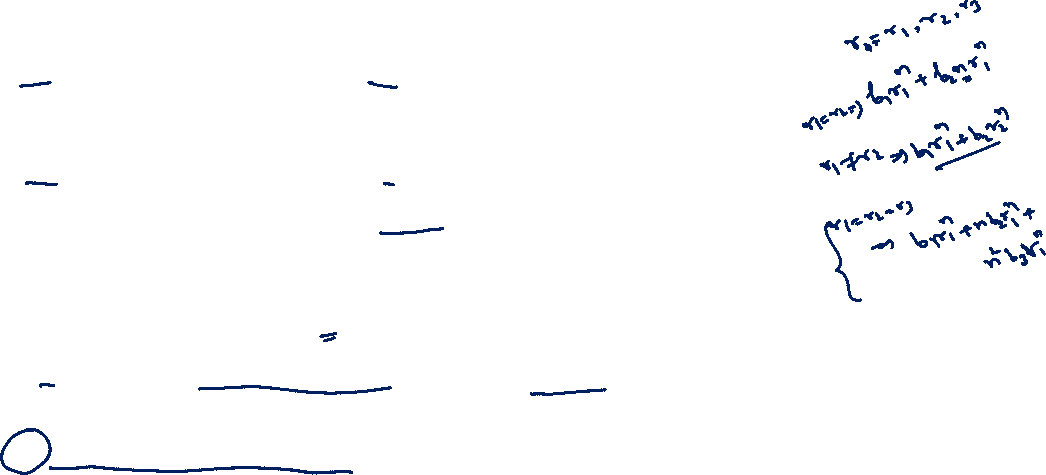 r₀ = r₁, r₂, r₃
r₁ = r₂ ⇒ b₁r₁ⁿ + b₂n r₁ⁿ
r₁ ≠ r₂ ⇒ b₁r₁ⁿ + b₂r₂ⁿ
r₁ = r₂ = r₃
⇒ b₁r₁ⁿ + n b₂r₁ⁿ +
n² b₃r₁ⁿ